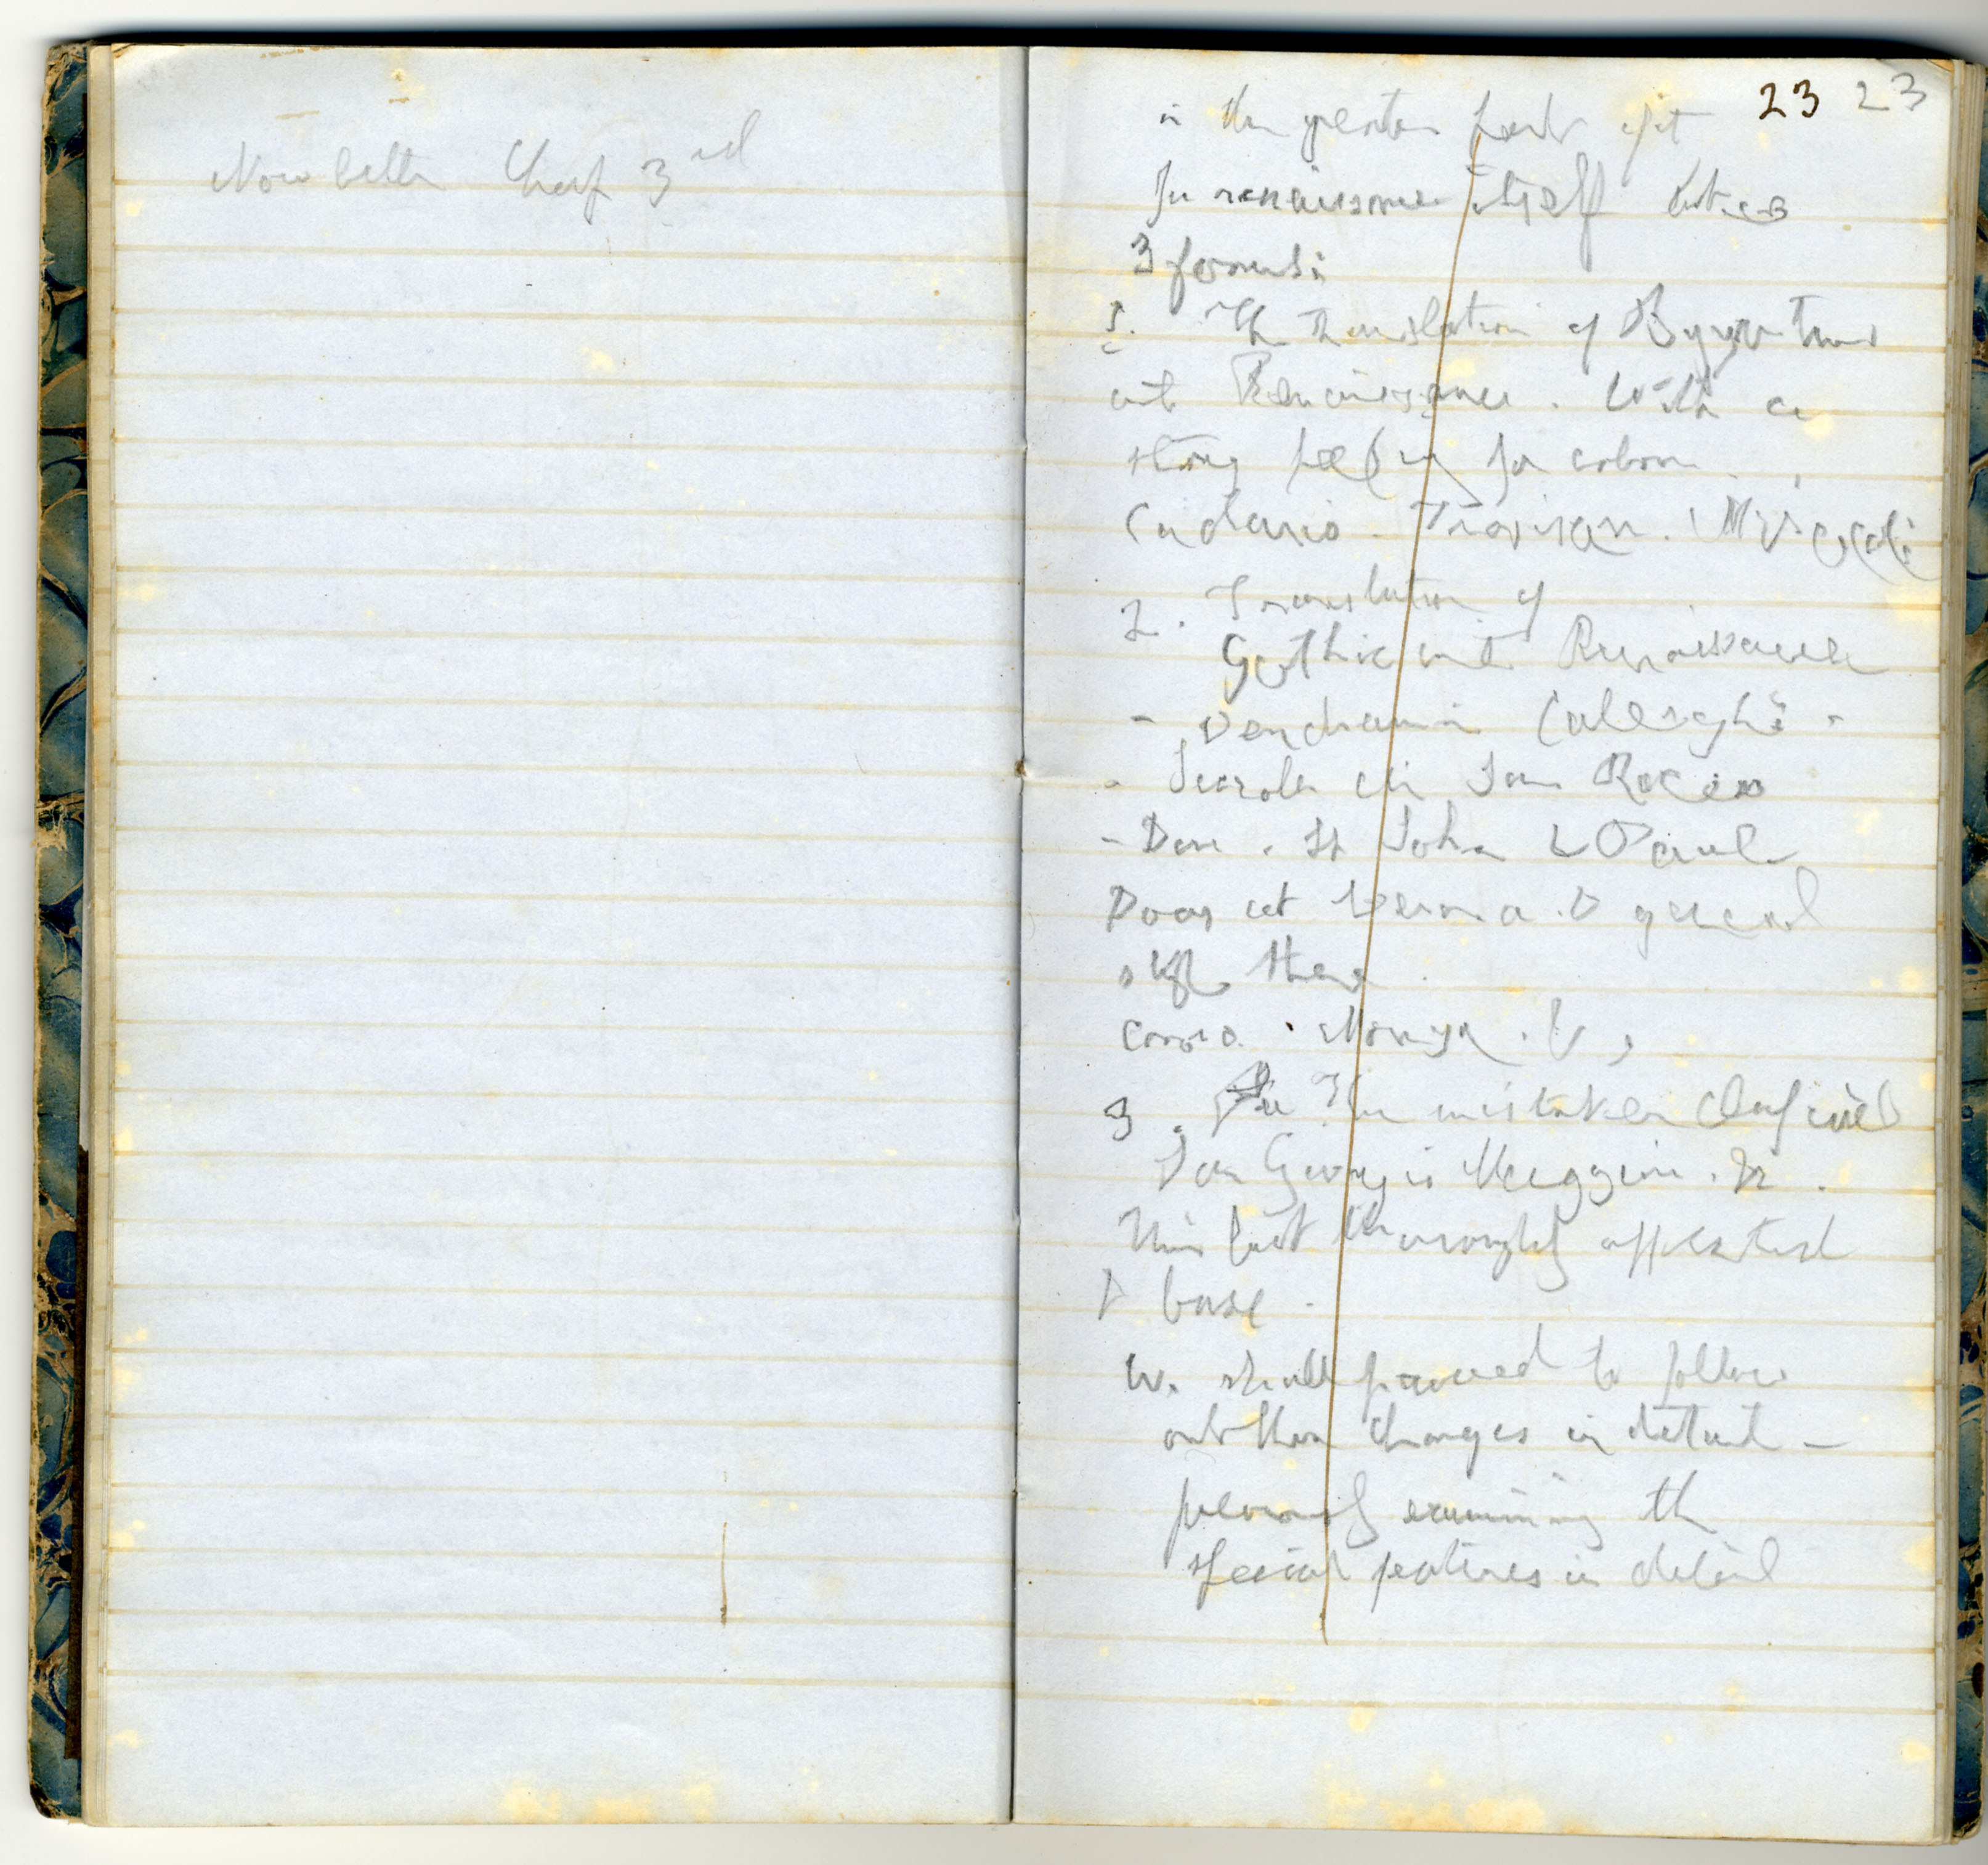 Now better Chap 3rd
23 23
in the greater part of it
The renaissance itself takes
3 forms:
1. The Translation of Byzantine
into Renaissance. With a
strong feeling for colour.
Cadario. Trevisan.
2. Translation of
Gothic into Renaissance
- Vendramin Calerghi -
- Scuola di San Rocco
- Door. St John & Paul
Door at Verona. & general
style there
Como. &
3. The mistaken Classical
San Giorgio Maggiore. &c.
This last thoroughly affected
& base.
We shall proceed to follow
out these changes in detail -
previously examining the
special features in detail